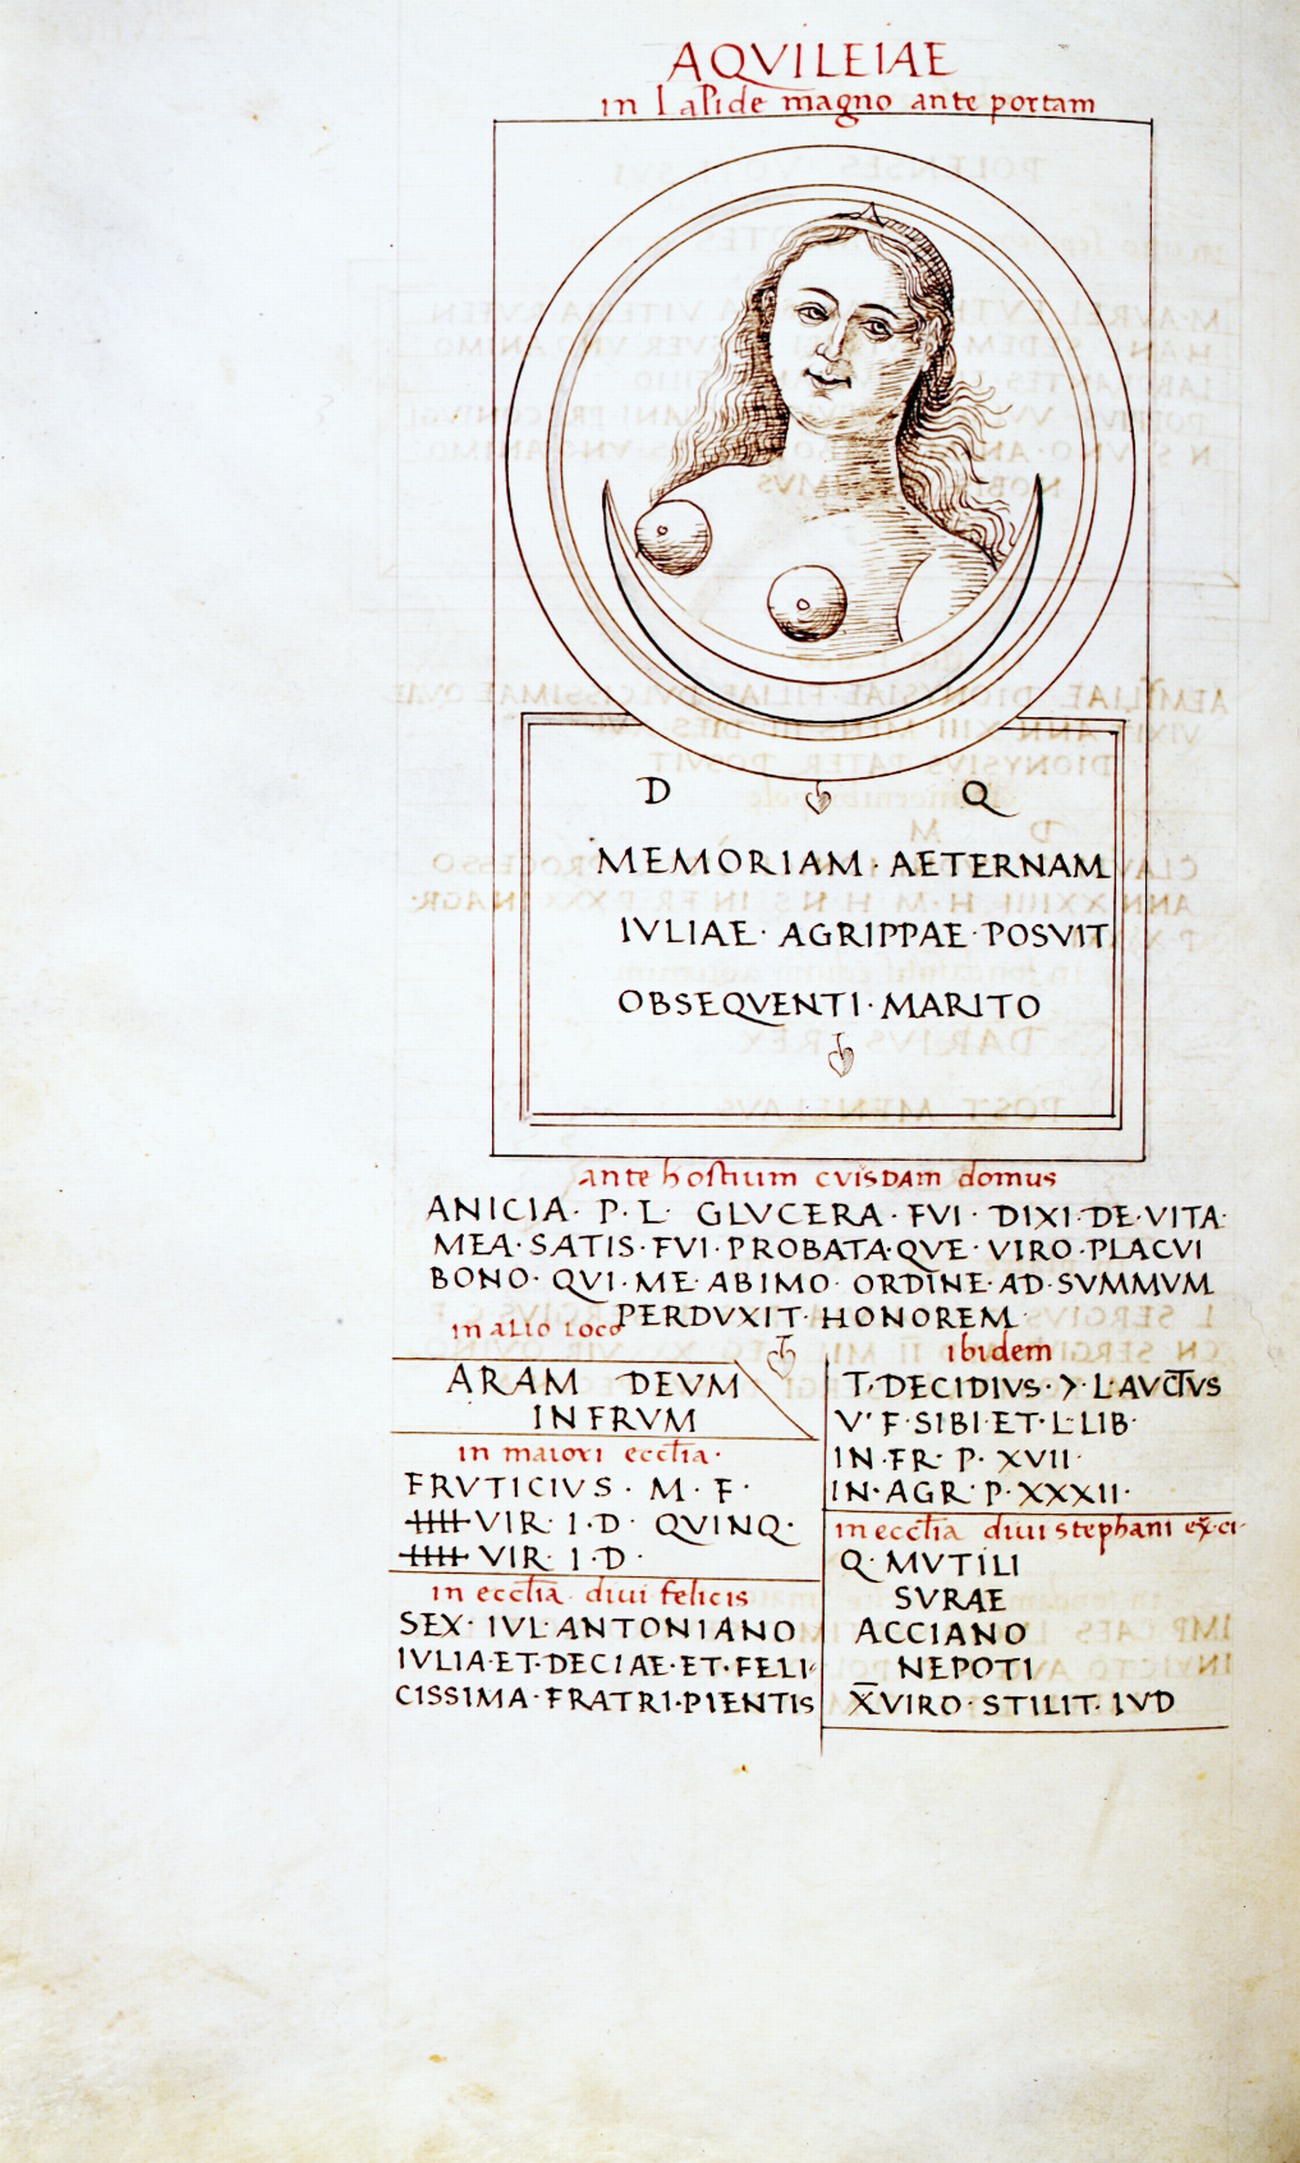 AQVILEIAE
in lapide magno ante portam
D Q
MEMORIAM · AETERNAM
IVLIAE · AGRIPPAE · POSVIT
OBSEQVENTI · MARITO
ante hostium cuisdam domus
ANICIA · P · L · GLVCERA · FVI · DIXI · DE · VITA ·
MEA · SATIS · FVI · PROBATA · QVE · VIRO · PLACVI
BONO · QVI · ME · ABIMO · ORDINE · AD · SVMMVM
PERDVXIT · HONOREM ·
in alio loco
ARAM DEVM
INFRVM
in maiori eccl̅ia ·
FRVTICIVS · M · F ·
IIII VIR · I · D · QVINQ ·
IIII VIR · I · D ·
in eccl̅ia divi felicis
SEX · IVL · ANTONIANO
IVLIA · ET · DECIAE · ET · FELI
CISSIMA · FRATRI · PIENTIS
ibidem
T · DECIDIVS · > · L · AVCTVS
V · F · SIBI · ET · L · LIB ·
IN · FR · P · XVII ·
IN · AGR · P · XXXII ·
in eccl̅ia divi stephani
Q · MVTILI
SVRAE
ACCIANO
NEPOTI
X̅VIRO · STILIT · IVD